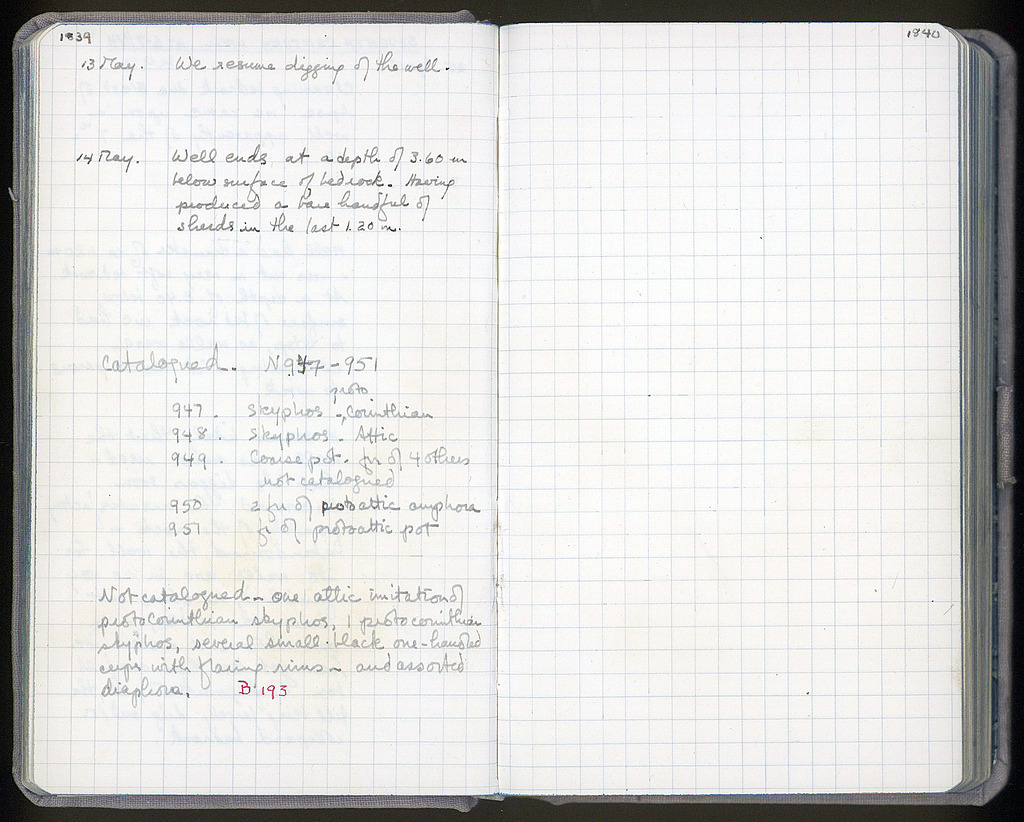 1839
13 May. We resume digging of the well.
14 May. Well ends at a depth of 3.60 m
below surface of bedrock. Having
produced a bare handful of
sherds in the last 1.20 m.
Catalogued. N 947 - 951
proto
947. Skyphos - Corinthian
948. Skyphos - Attic
949. Coarse pot. fr of 4 others
not catalogued
950 2 fr of protoattic amphora
951 fr of protoattic pot
Not catalogued - one attic imitation of
protocorinthian skyphos, 1 protocorinthian
skyphos, several small black one-handled
cups with flaring rims - and assorted
diaphora. B 193
1840